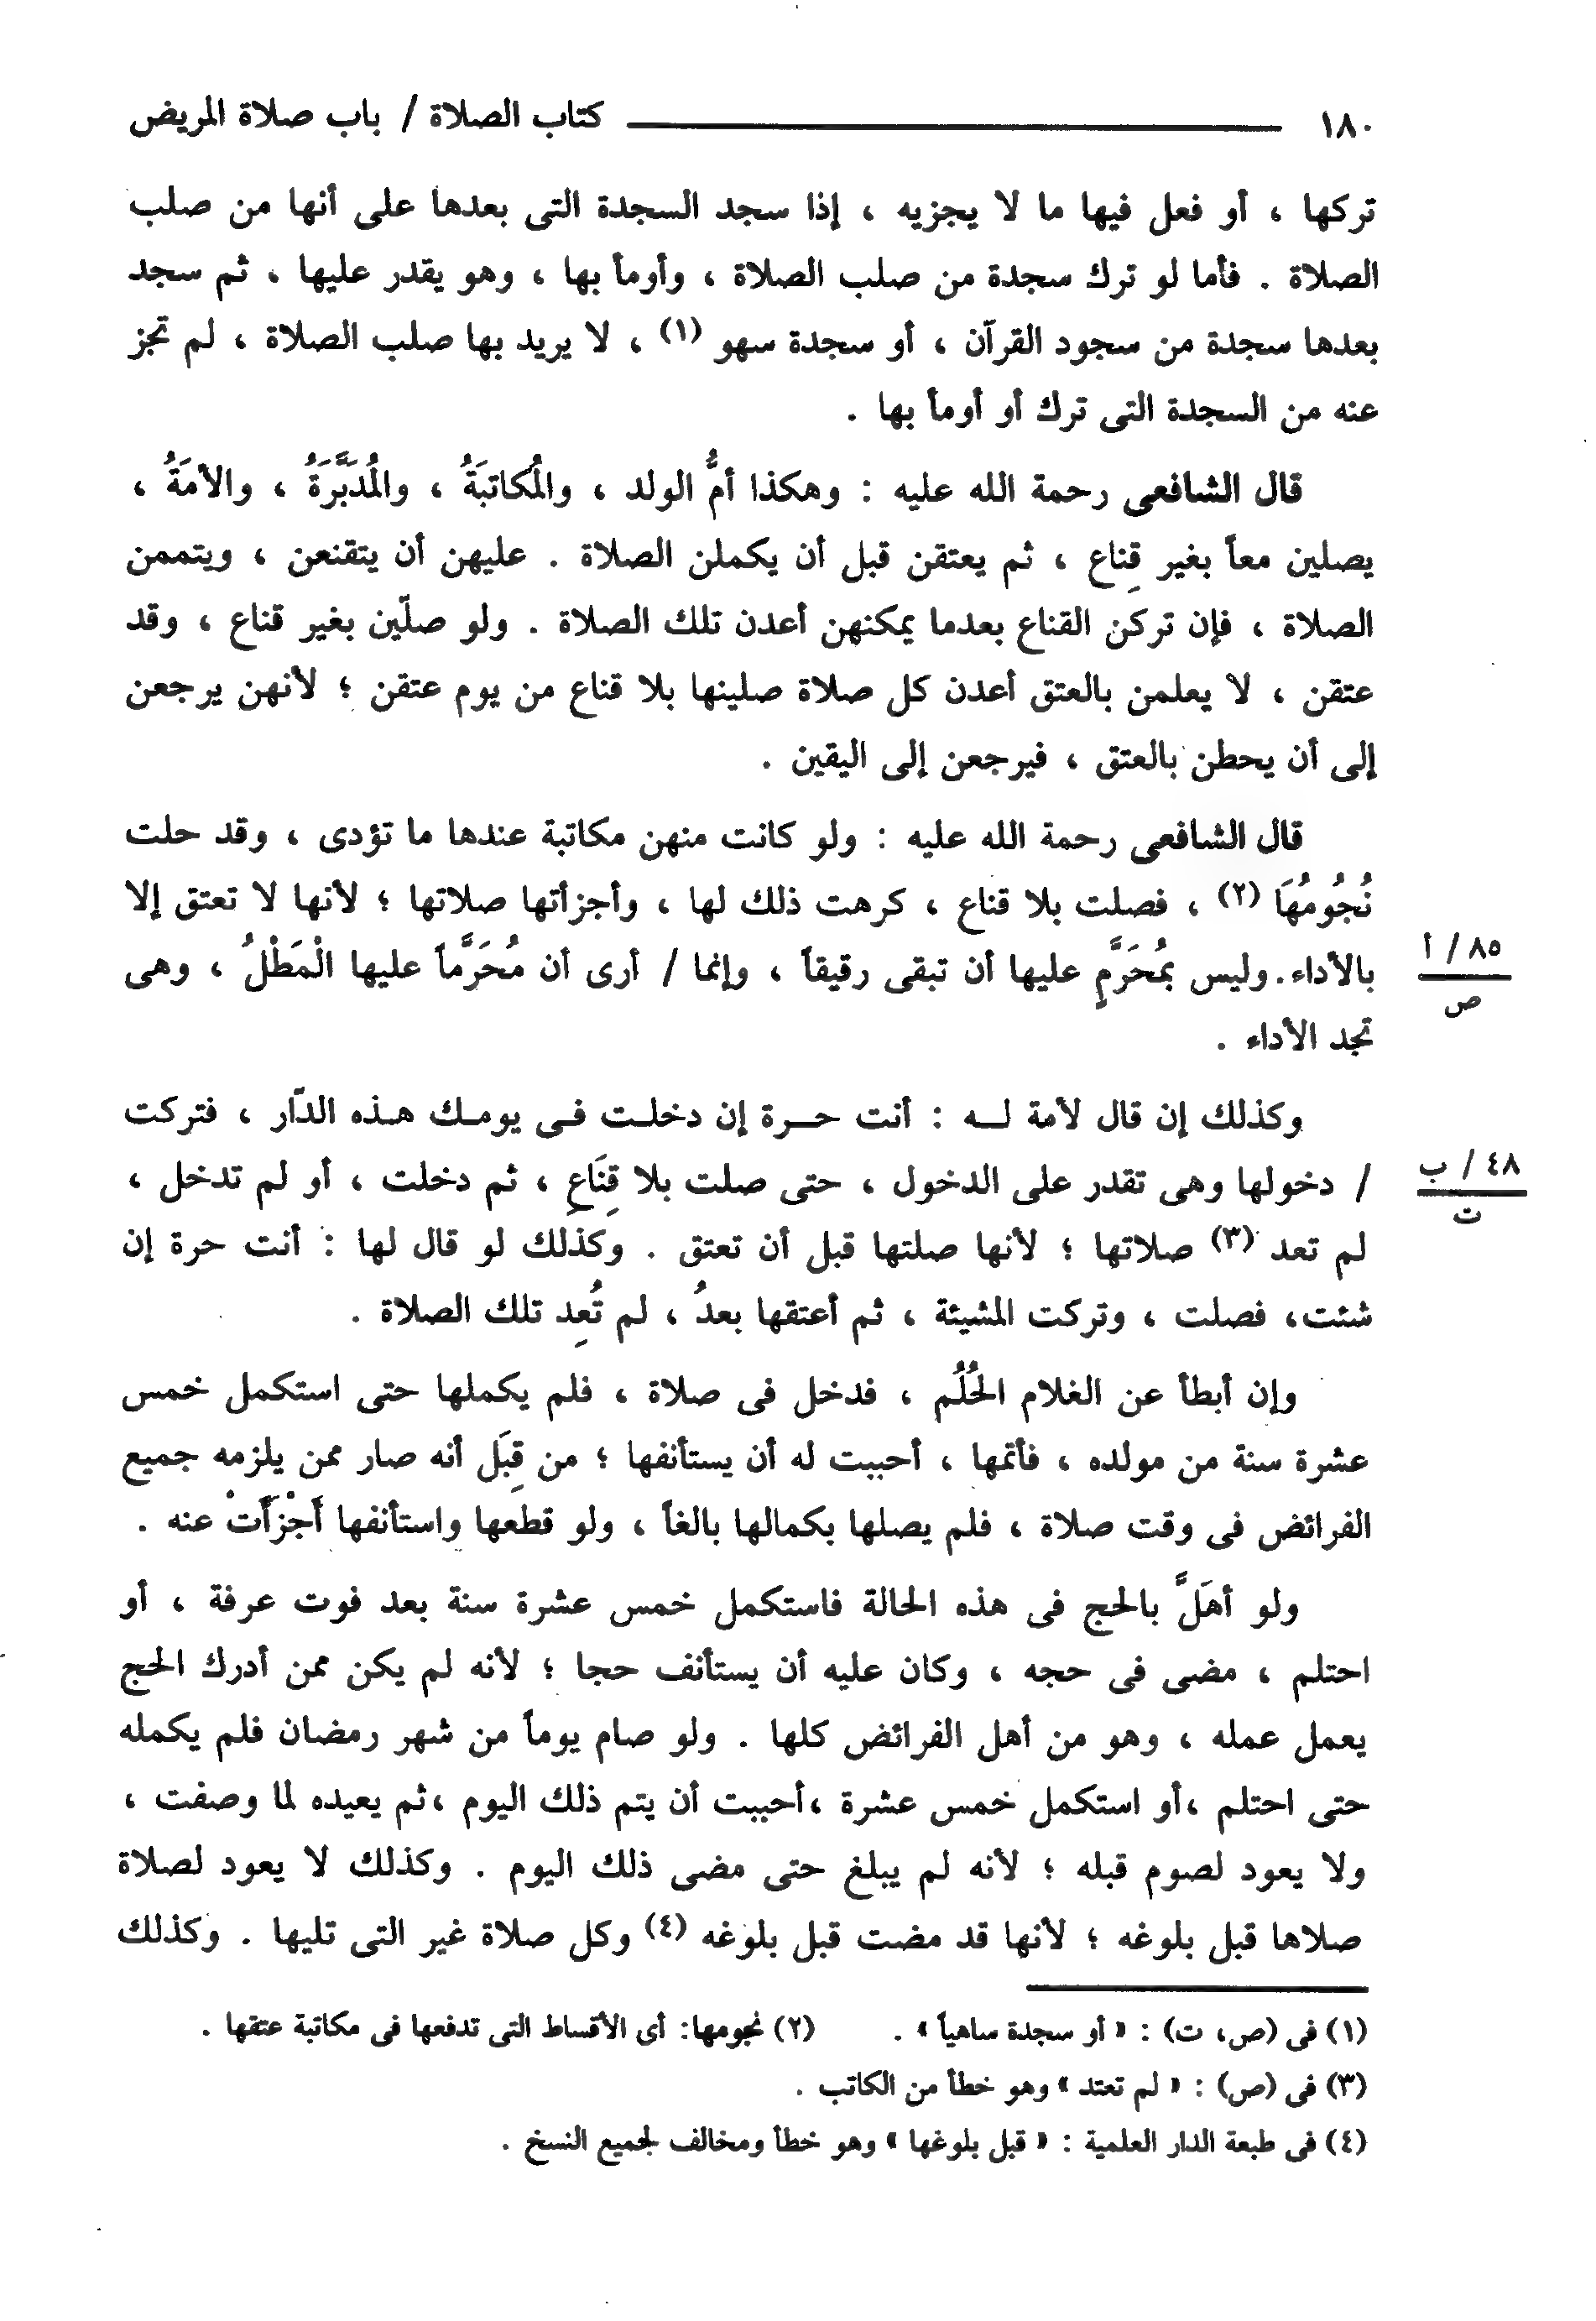 ١٨٠ كتاب الصلاة / باب صلاة المريض
تركها ، أو فعل فيها ما لا يجزيه ، إذا سجد السجدة التى بعدها على أنها من صلب
الصلاة . فأما لو ترك سجدة من صلب الصلاة ، وأومأ بها ، وهو يقدر عليها ، ثم سجد
بعدها سجدة من سجود القرآن ، أو سجدة سهو (١) ، لا يريد بها صلب الصلاة ، لم تجز
عنه من السجدة التى ترك أو أومأ بها .
قال الشافعى رحمة الله عليه : وهكذا أمُّ الولد ، والمُكاتبَةُ ، والمُدَبَّرَةُ ، والأمَةُ ،
يصلين معاً بغير قِناع ، ثم يعتقن قبل أن يكملن الصلاة . عليهن أن يتقنعن ، ويتممن
الصلاة ، فإن تركن القناع بعدما يمكنهن أعدن تلك الصلاة . ولو صلّين بغير قناع ، وقد
عتقن ، لا يعلمن بالعتق أعدن كل صلاة صلينها بلا قناع من يوم عتقن ؛ لأنهن يرجعن
إلى أن يحطن بالعتق ، فيرجعن إلى اليقين .
قال الشافعى رحمة الله عليه : ولو كانت منهن مكاتبة عندها ما تؤدى ، وقد حلت
نُجُومُهَا (٢) ، فصلت بلا قناع ، كرهت ذلك لها ، وأجزأتها صلاتها ؛ لأنها لا تعتق إلا
بالأداء. وليس بمُحَرَّمٍ عليها أن تبقى رقيقاً ، وإنما / أرى أن مُحَرَّماً عليها الْمَطْلُ ، وهى
٨٥ / أ
ص
تجد الأداء .
وكذلك إن قال لأمة لـه : أنت حـرة إن دخلـت فـى يومـك هـذه الدّار ، فتركت
/ دخولها وهى تقدر على الدخول ، حتى صلت بلا قِنَاعٍ ، ثم دخلت ، أو لم تدخل ،
٤٨ / ب
ت
لم تعد (٣) صلاتها ؛ لأنها صلتها قبل أن تعتق . وكذلك لو قال لها : أنت حرة إن
شئت، فصلت ، وتركت المشيئة ، ثم أعتقها بعدُ ، لم تُعِد تلك الصلاة .
وإن أبطأ عن الغلام الحُلُم ، فدخل فى صلاة ، فلم يكملها حتى استكمل خمس
عشرة سنة من مولده ، فأتمها ، أحببت له أن يستأنفها ؛ من قِبَل أنه صار ممن يلزمه جميع
الفرائض فى وقت صلاة ، فلم يصلها بكمالها بالغاً ، ولو قطعها واستأنفها أَجْزَأَتْ عنه .
ولو أهَلَّ بالحج فى هذه الحالة فاستكمل خمس عشرة سنة بعد فوت عرفة ، أو
احتلم ، مضى فى حجه ، وكان عليه أن يستأنف حجا ؛ لأنه لم يكن ممن أدرك الحج
يعمل عمله ، وهو من أهل الفرائض كلها . ولو صام يوماً من شهر رمضان فلم يكمله
حتى احتلم ،أو استكمل خمس عشرة ،أحببت أن يتم ذلك اليوم ،ثم يعيده لما وصفت ،
ولا يعود لصوم قبله ؛ لأنه لم يبلغ حتى مضى ذلك اليوم . وكذلك لا يعود لصلاة
صلاها قبل بلوغه ؛ لأنها قد مضت قبل بلوغه (٤) وكل صلاة غير التى تليها . وكذلك
(١) فى (ص، ت) : « أو سجدة ساهياً » . (٢) نجومها: أى الأقساط التى تدفعها فى مكاتبة عتقها .
(٣) فى (ص) : « لم تعتد » وهو خطأ من الكاتب .
(٤) فى طبعة الدار العلمية : « قبل بلوغها » وهو خطأ ومخالف لجميع النسخ .